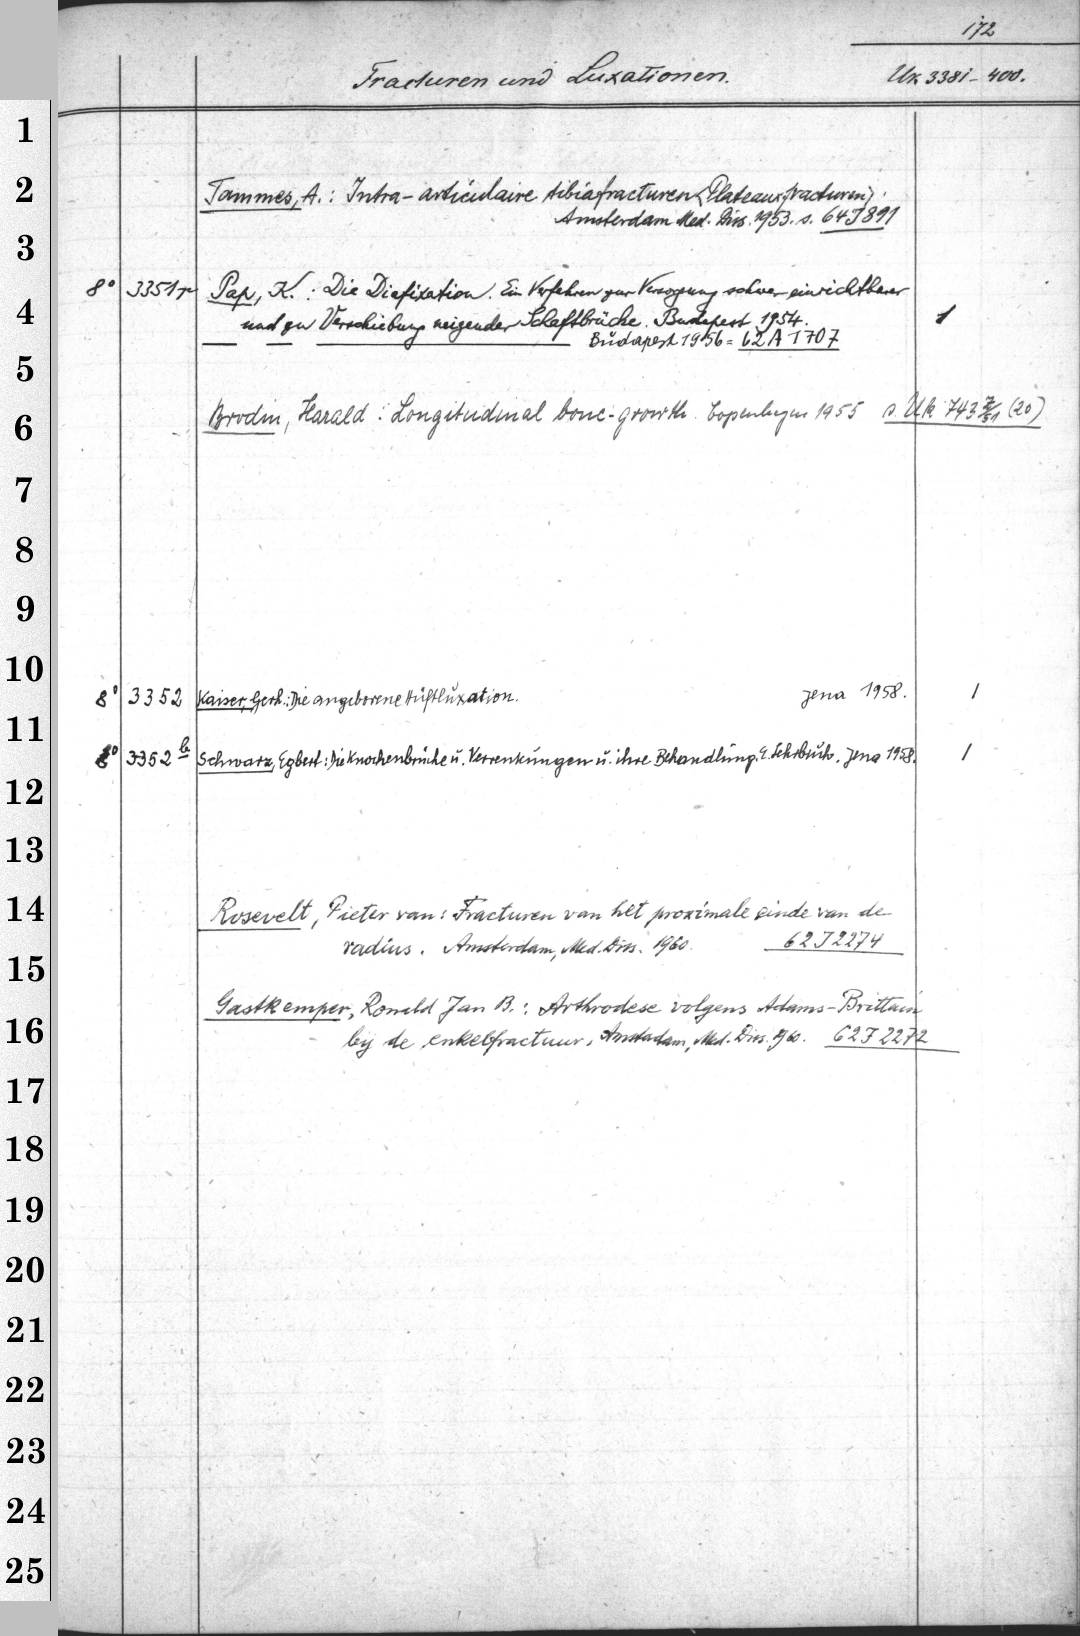 172
Fracturen und Luxationen.
Uk 3381-400.
1
2
Tammes, A.: Intra-articulaire tibiafracturen (Plateaufracturen).
Amsterdam Med. Diss. 1953. s. 64J891
3
8° 3351r Pap, K.: Die Diafixation. Ein Verfahren zur Versorgung schwer einrichtbarer
4
und zu Verschiebung neigender Schaftbrüche. Budapest 1954. 1
Budapest 1956 = 62A1707
5
6
Brodin, Harald: Longitudinal bone-growth. Copenhagen 1955 s. Uk 743 (20)
7
8
9
10
8° 3352 Kaiser, Gerh.: Die angeborene Hüftluxation. Jena 1958. 1
11
8° 3352b Schwarz, Egbert: Die Knochenbrüche u. Verrenkungen u. ihre Behandlung. E. Lehrbuch. Jena 1958. 1
12
13
14
Rosevelt, Pieter van: Fracturen van het proximale einde van de
radius. Amsterdam, Med. Diss. 1960. 62J2274
15
Gastkemper, Ronald Jan B.: Arthrodese volgens Adams-Brittain
16
bij de enkelfractuur. Amsterdam, Med. Diss. 1960. 62J2272
17
18
19
20
21
22
23
24
25